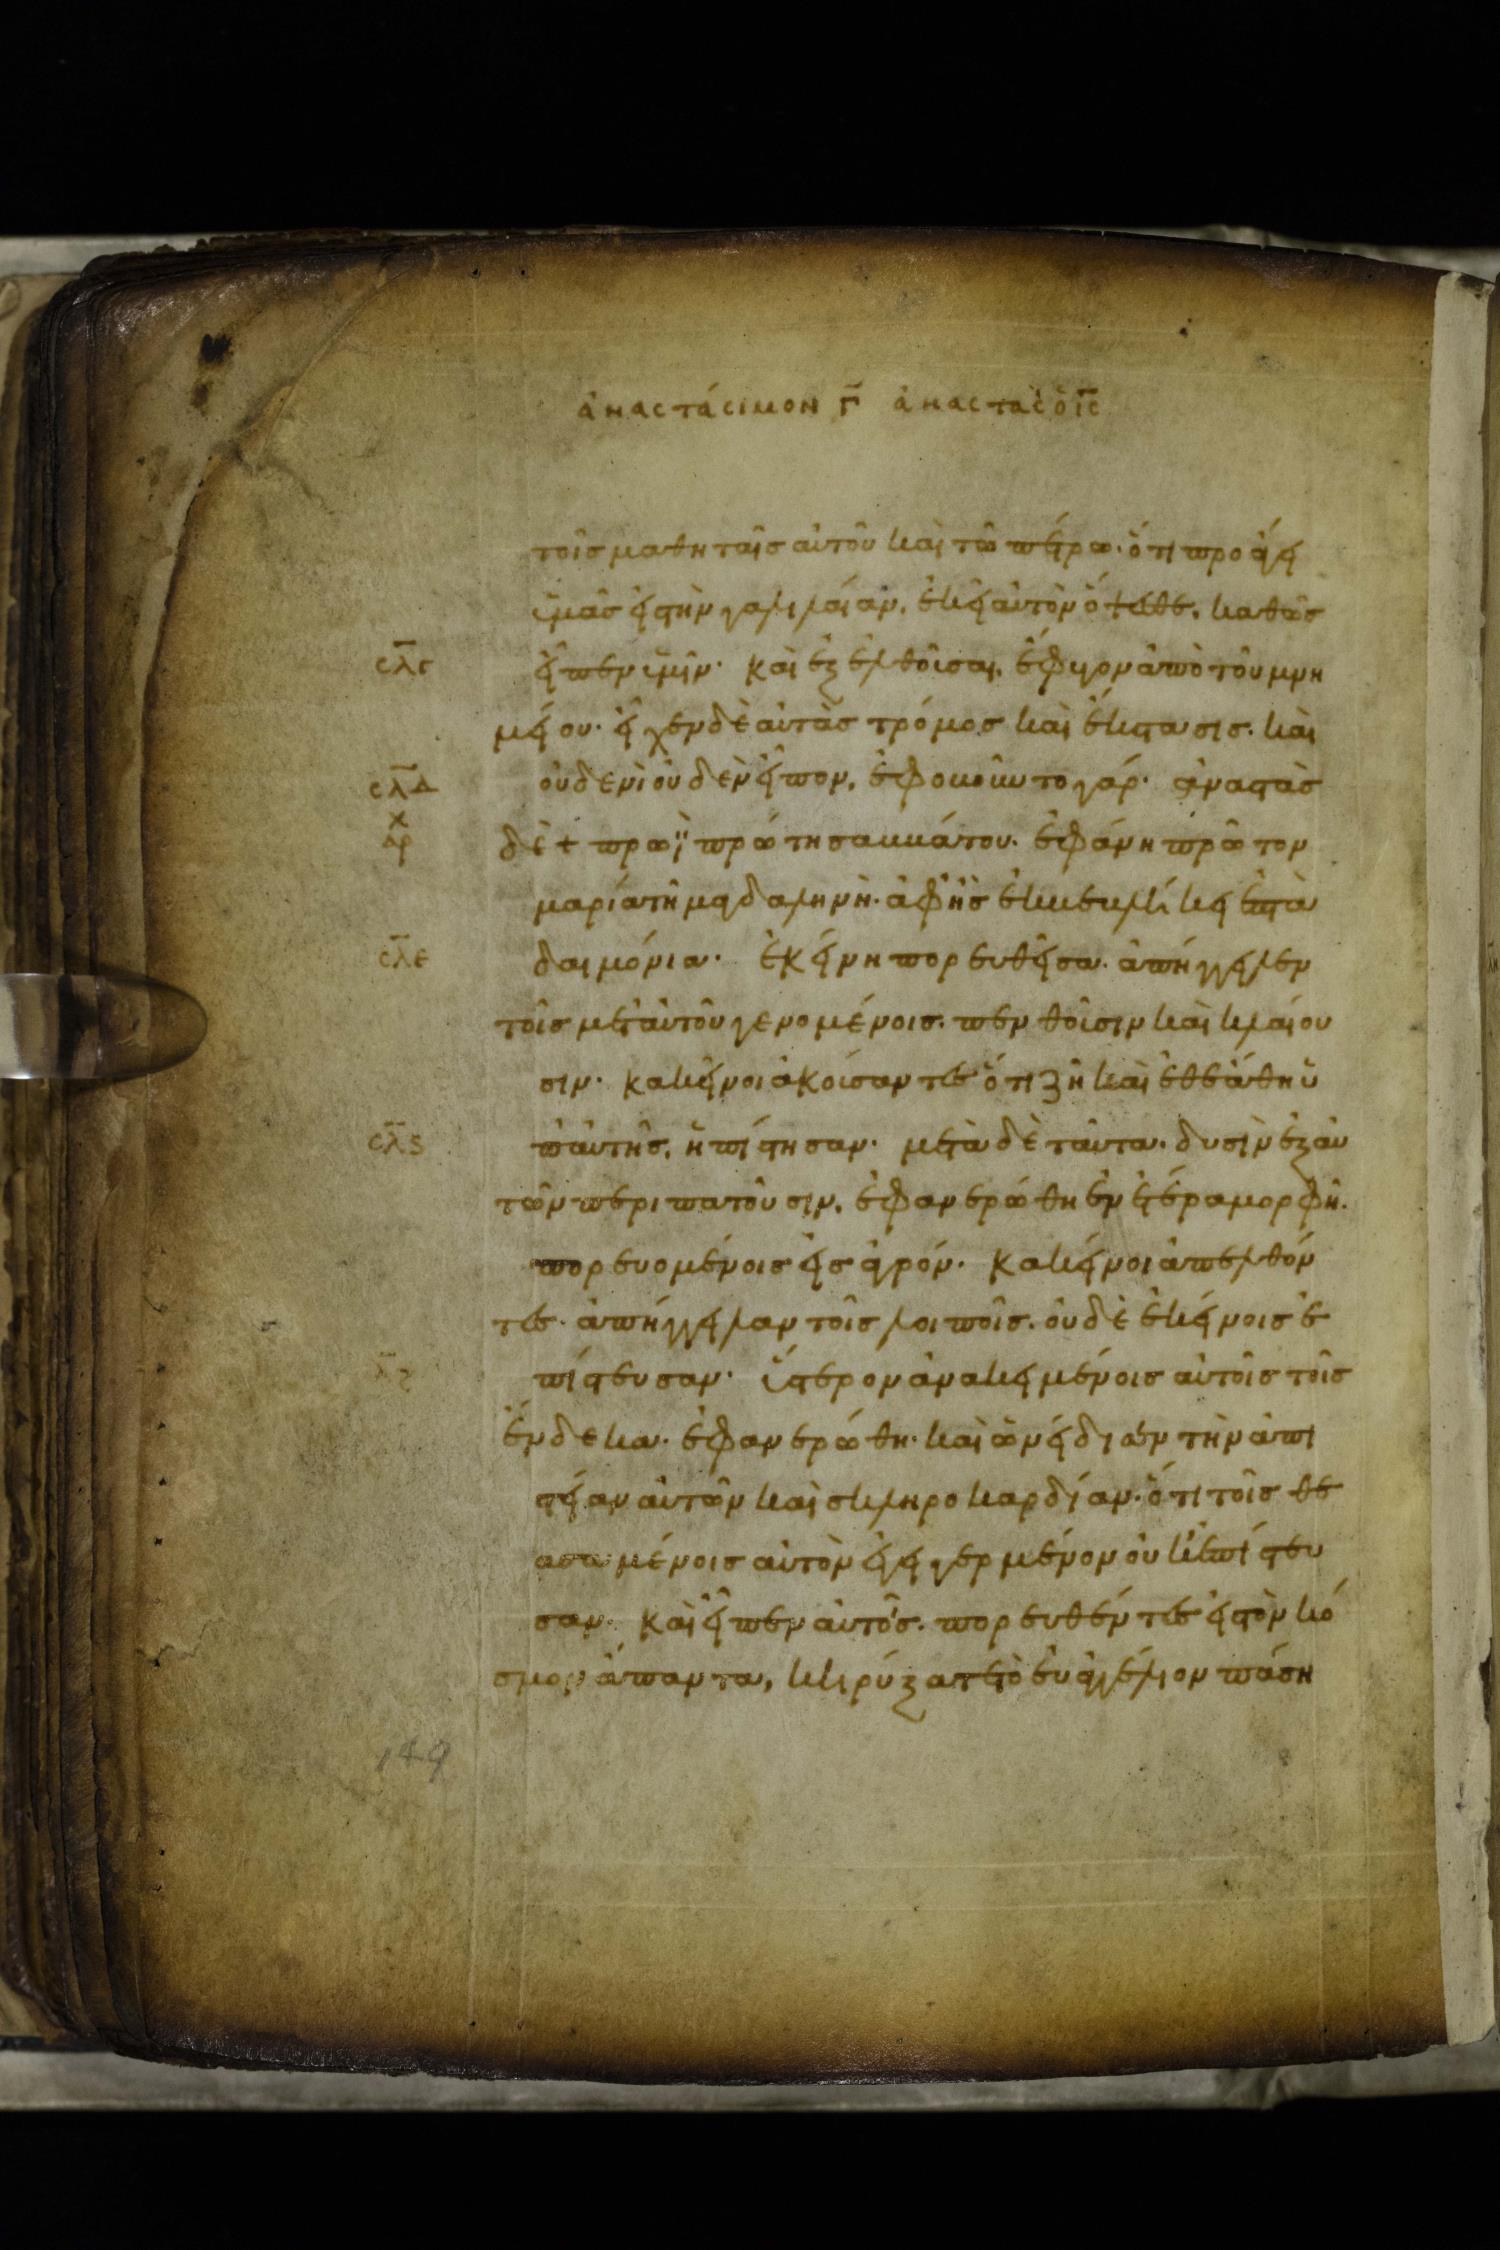 ἀναστάσιμον γ̄ ἀναστὰς ὁ ῑς
τοῖς μαθηταῖς αὐτοῦ καὶ τῶ πέτρω· ὅτι προάγει
ὑμᾶς εἰς τὴν γαλιλαίαν, ἐκεῖ αὐτὸν ὄψεσθε, καθὼς
σλγ εἶπεν ὑμῖν· Καὶ ἐξελθοῦσαι, ἔφυγον ἀπὸ τοῦ μνη
μείου· εἶχεν δὲ αὐτὰς τρόμος καὶ ἔκστασις· καὶ
σλδ οὐδενὶ οὐδὲν εἶπον, ἐφοβοῦντο γάρ· ἀναστὰς
δὲ + πρωῒ πρώτη σαββάτου· ἐφάνη πρῶτον
μαρία τῆ μαγδαληνῆ· ἀφ' ἧς ἐκβεβλήκει ἑπτὰ
σλε δαιμόνια· ἐκείνη πορευθεῖσα· ἀπήγγειλεν
τοῖς μετ' αὐτοῦ γενομένοις· πενθοῦσιν καὶ κλαίου
σιν· Κακεῖνοι ἀκούσαντες ὅτι ζῆ καὶ ἐθεάθη ὑ
σλς π' αὐτῆς, ἠπίστησαν· μετὰ δὲ ταῦτα· δυσὶν ἐξ αὐ
τῶν περιπατοῦσιν, ἐφανερώθη ἐν ἑτέρα μορφῆ·
πορευομένοις εἰς ἀγρόν· Κακεῖνοι ἀπελθόν
τες· ἀπήγγειλαν τοῖς λοιποῖς· οὐδὲ ἐκείνοις ἐ
πίστευσαν· ὕστερον ἀνακειμένοις αὐτοῖς τοῖς
ἕνδεκα· ἐφανερώθη· καὶ ὠνείδισεν τὴν ἀπι
στείαν αὐτῶν καὶ σκληροκαρδίαν· ὅτι τοῖς θε
ασαμένοις αὐτὸν ἐγηγερμένον οὐκ ἐπίστευ
σαν· Καὶ εἶπεν αὐτοῖς· πορευθέντες εἰς τὸν κό
σμον ἅπαντα, κηρύξατε τὸ εὐαγγέλιον πάση
149